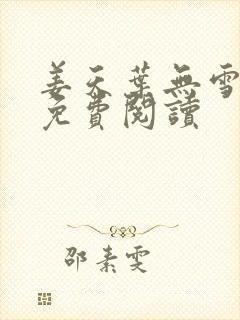 姜天葉無雪
免費閱讀
邵素雯